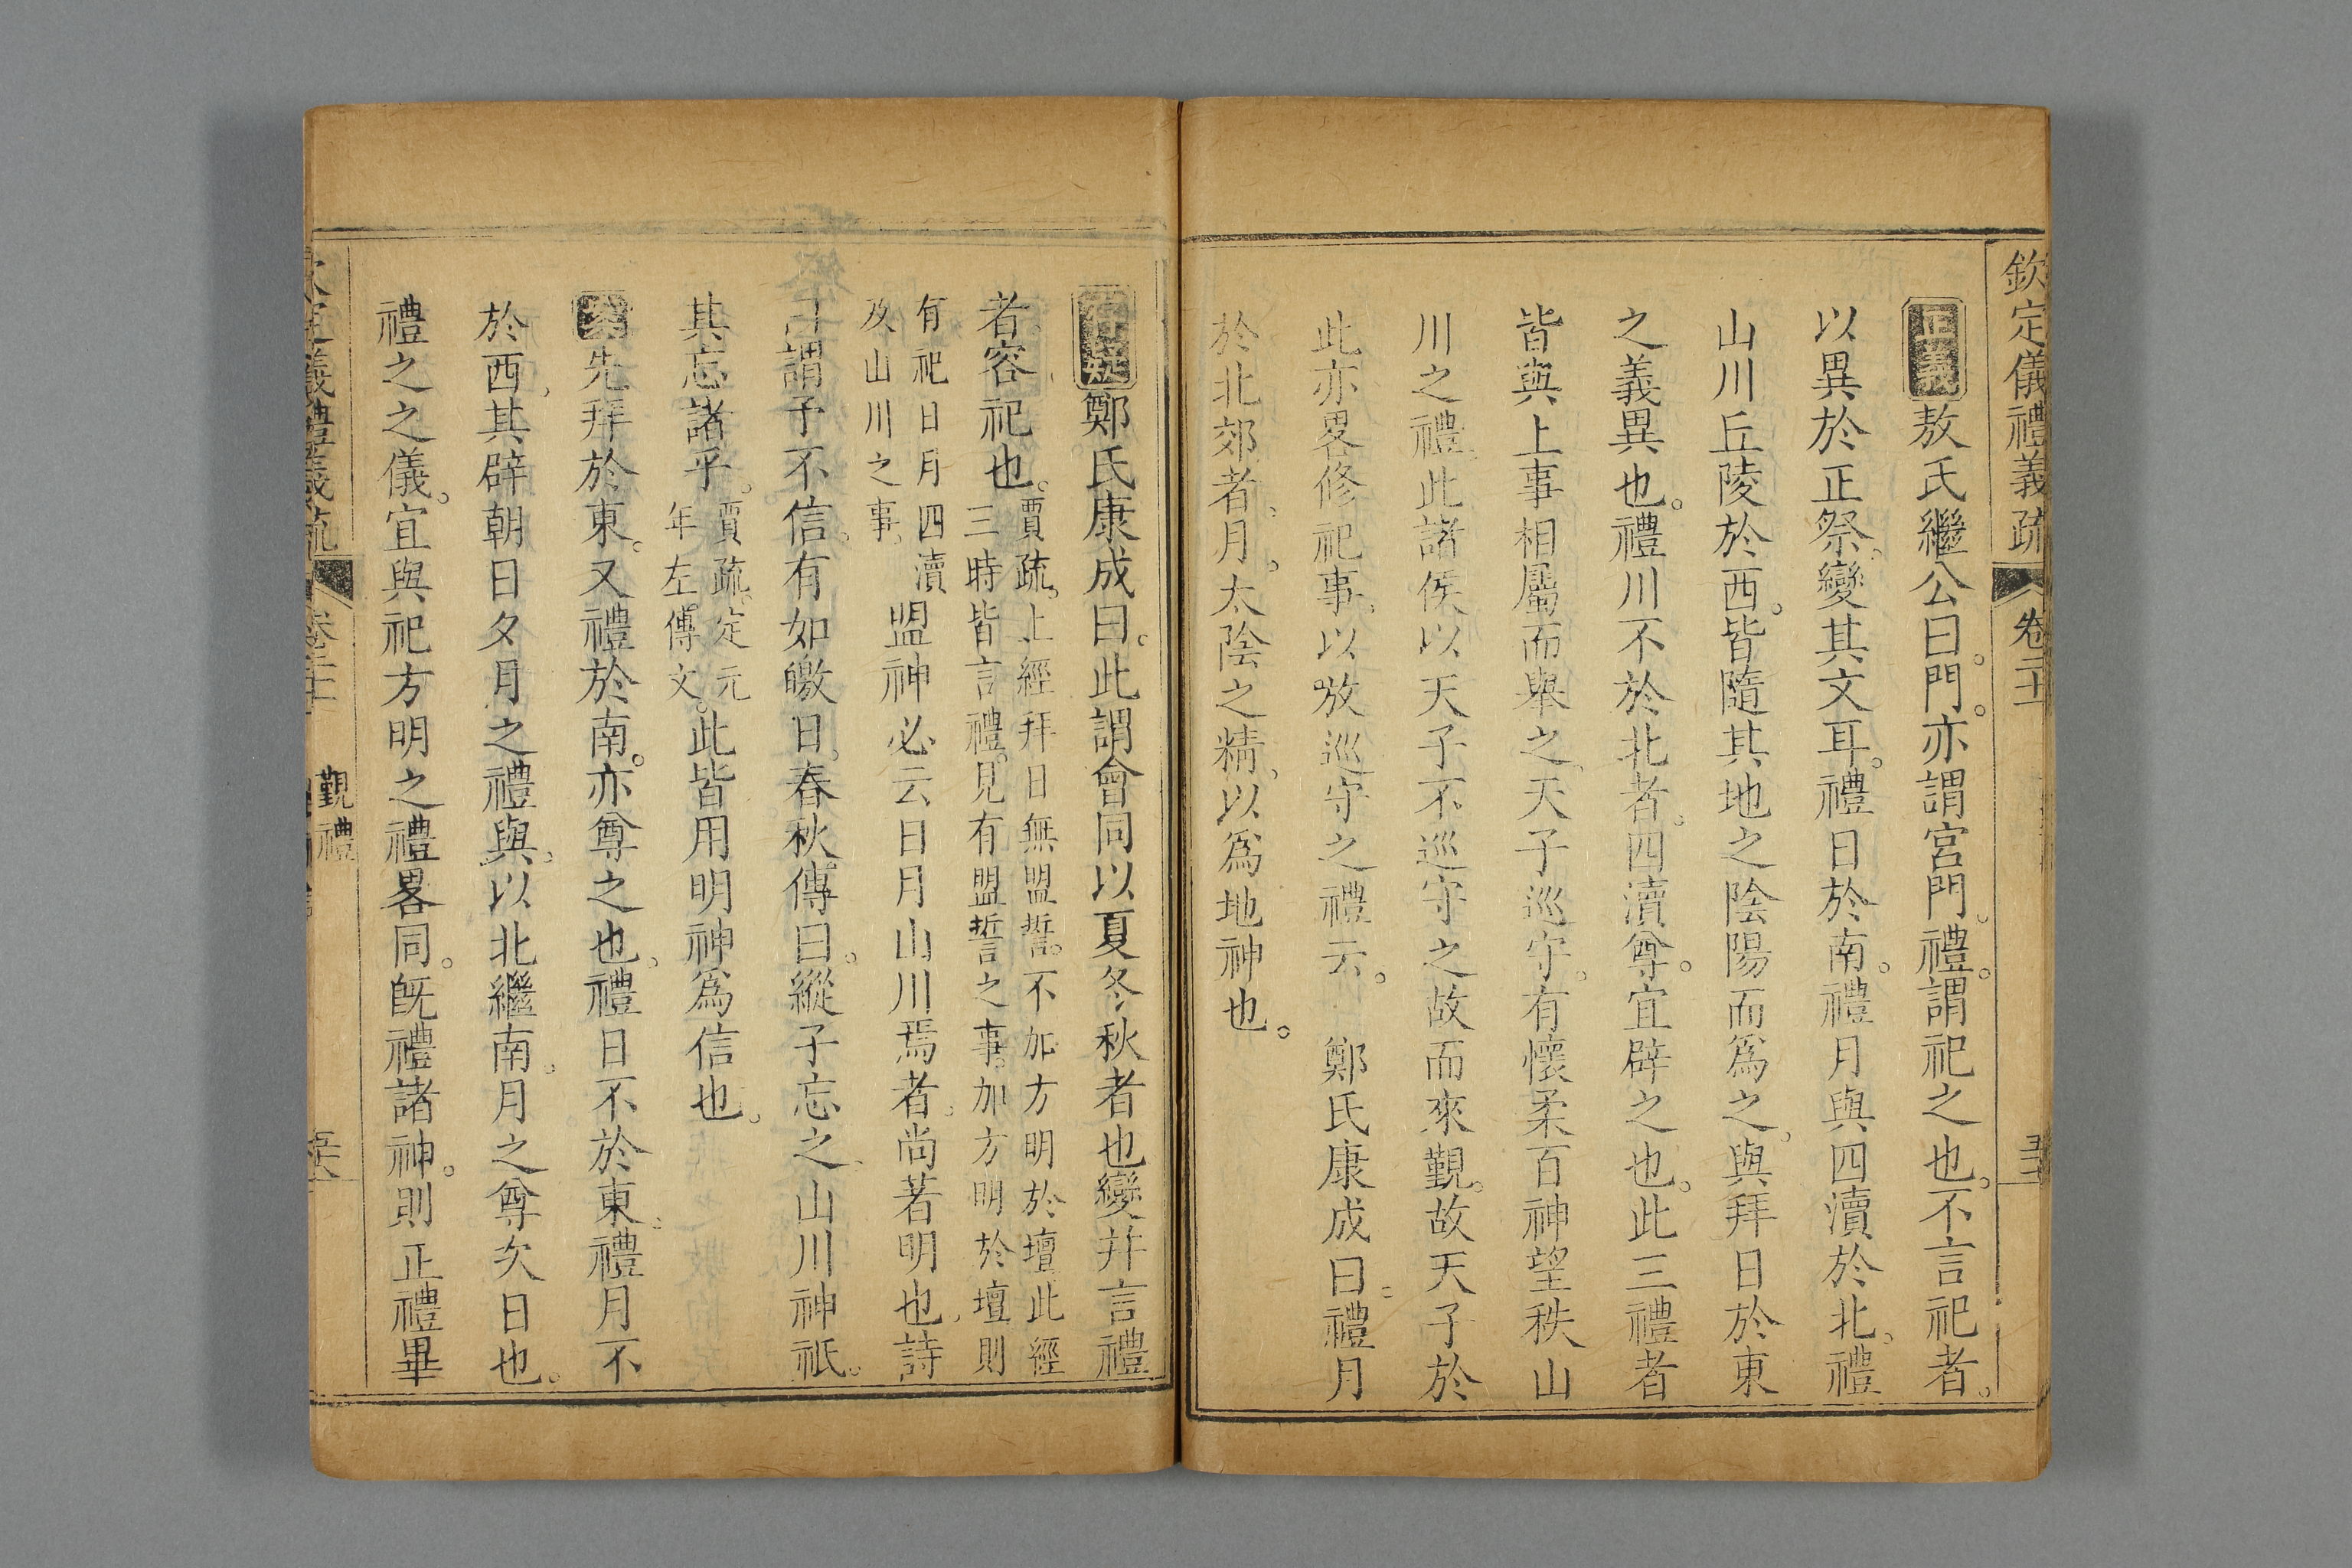 欽定儀禮義疏 卷二十
正義敖氏繼公曰門亦謂宮門禮謂祀之也不言祀者
以異於正祭變其文耳禮日於南禮月與四瀆於北禮
山川丘陵於西皆隨其地之陰陽而爲之與拜日於東
之義異也禮川不於北者四瀆尊宜辟之也此三禮者
皆與上事相屬而舉之天子巡守有懷柔百神望秩山
川之禮此諸侯以天子不巡守之故而來覲故天子於
此亦畧修祀事以放巡守之禮云 鄭氏康成曰禮月
於北郊者月太陰之精以爲地神也
存疑鄭氏康成曰此謂會同以夏冬秋者也變幷言禮
者容祀也賈疏上經拜日無盟誓不加方明於壇此經
三時皆言禮見有盟誓之事加方明於壇則
有祀日月四瀆
及山川之事盟神必云日月山川焉者尚著明也詩
曰謂予不信有如皦日春秋傳曰縱子忘之山川神祇
其忘諸乎賈疏定元
年左傳文此皆用明神爲信也
案先拜於東又禮於南亦尊之也禮日不於東禮月不
於西其辟朝日夕月之禮與以北繼南月之尊次日也
禮之之儀宜與祀方明之禮畧同旣禮諸神則正禮畢
定儀禮義疏 卷二十 覲禮